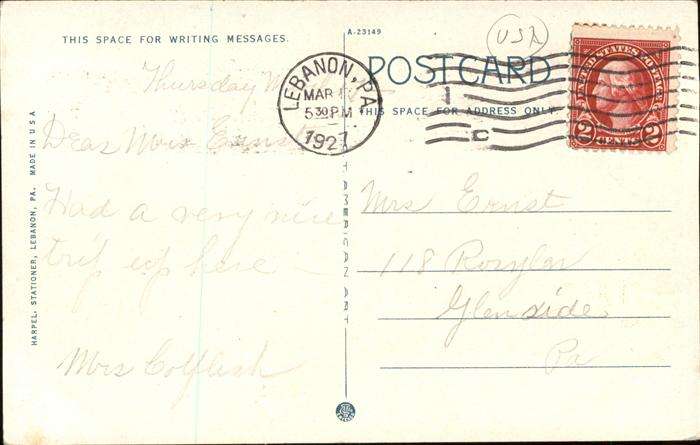 THIS SPACE FOR WRITING MESSAGES.
A-23149
USA
POSTCARD
THIS SPACE FOR ADDRESS ONLY.
LEBANON, PA.
MAR
5 30 PM
1927
UNITED STATES POSTAGE
2 CENTS 2
Thursday
Dear Mrs Ernst
Had a very nice
trip up here
Mrs
Mrs Ernst
118
Glenside
Pa
AMERICAN ART
HARPEL, STATIONER, LEBANON, PA. MADE IN U S A